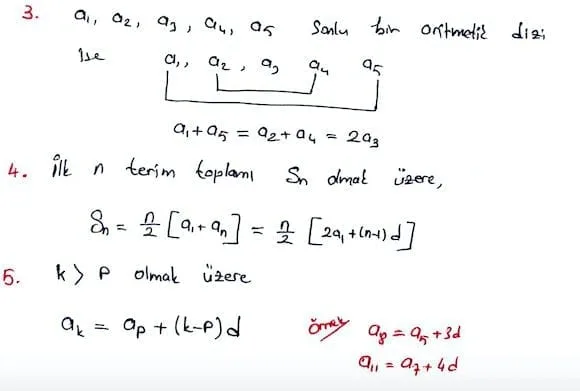 3. a₁, a₂, a₃, a₄, a₅ Sonlu bir aritmetik dizi
ise a₁, a₂, a₃ a₄ a₅
a₁+a₅ = a₂+a₄ = 2a₃
4. İlk n terim toplamı Sₙ olmak üzere,
Sₙ = n/2 [a₁+aₙ] = n/2 [2a₁+(n-1)d]
5. k > p olmak üzere
aₖ = aₚ + (k-p)d
örnek a₈ = a₅ + 3d
a₁₁ = a₇ + 4d